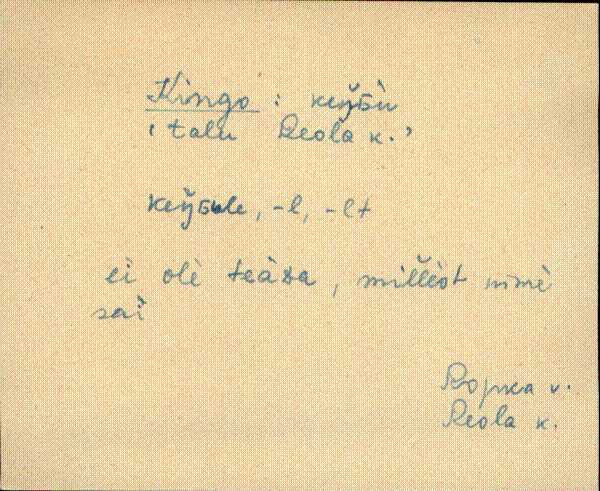 Kingo : keŋ̆ɢù
‘talu Reola k.’
keŋ̆ɢule, -l, -lt
eì olè teàᴅa, mìlˈlèst nimè
saì
Ropka v.
Reola k.